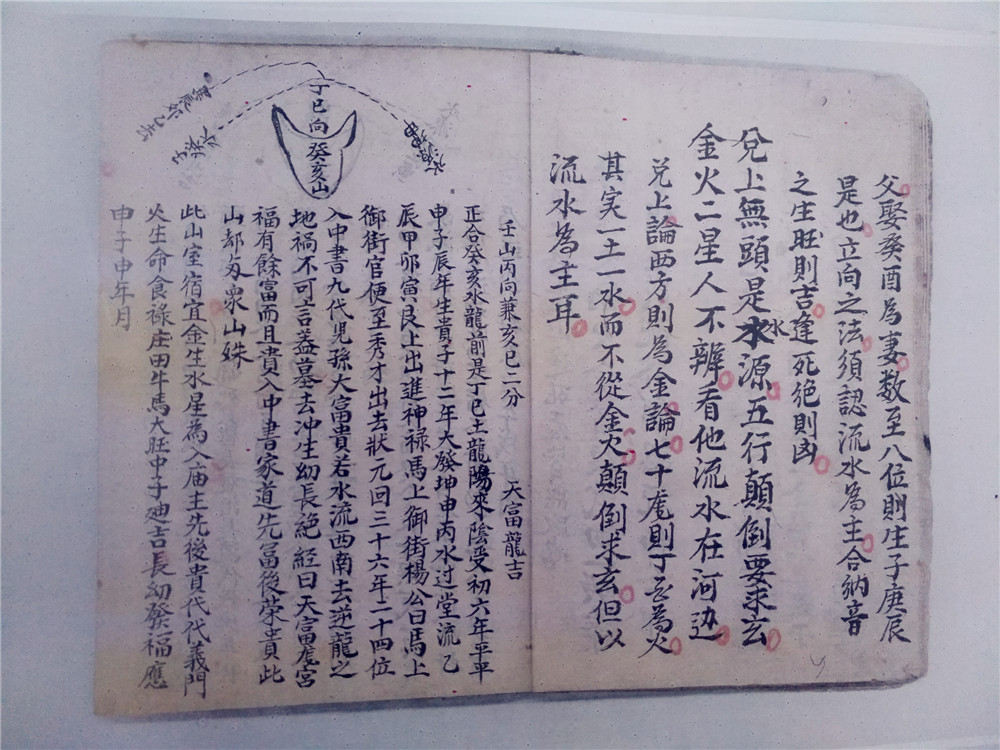 父娶癸酉為妻数至八位則生子庚辰
是也立向之法須認流水為主合納音
之生旺則吉逢死絶則凶
兌上無頭是水源五行顛倒要求玄
水
金火二星人不辨看他流水在河边
兌上論西方則為金論七十龙則丁巳為火
其实一土一水而不從金火顛倒求玄但以
流水為主耳
丁巳向
癸亥山
壬山丙向兼亥巳二分 天富龍吉
正合癸亥水龍前是丁巳土龍陽來陰受初六年平平
申子辰年生貴子十二年大發坤申丙水过堂流乙
辰甲卯寅艮上出進神禄馬上御街楊公曰馬上
御街官便至秀才出去狀元回三十六年二十四位
入中書九代児孫大富貴若水流西南去逆龍之
地禍不可言葢墓去冲生幼長絶經曰天富龙宮
福有餘富而且貴入中書家道先富後荣貴此
山却為衆山姝
此山室宿宜金生水星為入庙主先後貴代代義門
火生命食禄庄田牛馬大旺中子廸吉長幼發福應
申子申年月